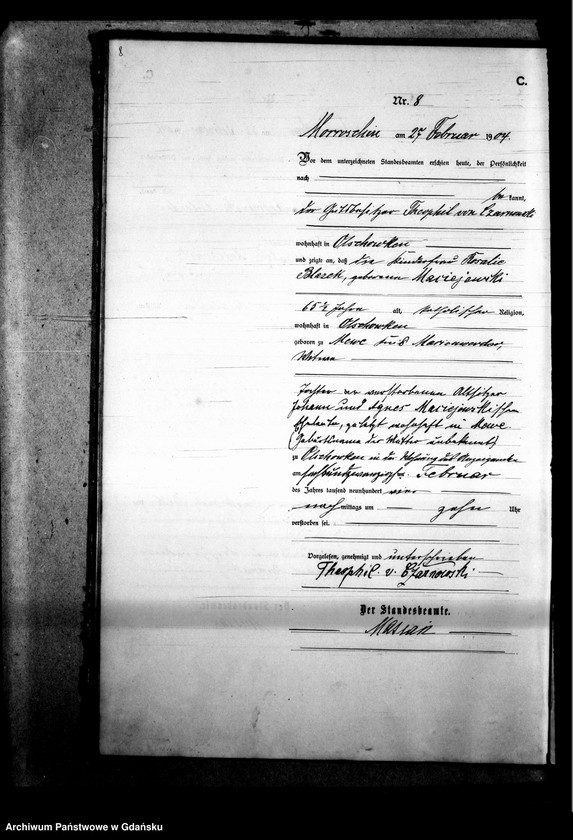 8
C.
Nr. 8
Morroschin am 27 Februar 1904.
Vor dem unterzeichneten Standesbeamten erschien heute, der Persönlichkeit
nach
be kannt,
der Gutsbesitzer Theophil von Czarnowski
wohnhaft in Olschowken
und zeigte an, daß die Kinderfrau Rosalie
Blazek, geborene Maciejewski
65 1/2 Jahre alt, katholischer Religion,
wohnhaft in Olschowken
geboren zu Mewe Kreis Marienwerder,
Witwe
Tochter der verstorbenen Altsitzer
Johann und Agnes Maciejewski'schen
Eheleute, zuletzt wohnhaft in Mewe
(Geburtsname der Mutter unbekannt)
zu Olschowken in der Wohnung des Anzeigenden
am sechsundzwanzigsten Februar
des Jahres tausend neunhundert vier
nach mittags um zehn Uhr
verstorben sei.
Vorgelesen, genehmigt und unterschrieben
Theophil. v. Czarnowski
Der Standesbeamte.
Archiwum Państwowe w Gdańsku